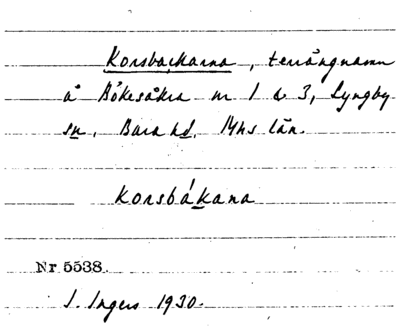 Korsbackarna, terrängnamn
å Bökesåkra nr 1 & 3, Lyngby
sn, Bara hd. Mhs län.
korsbákana
Nr 5538.
I. Ingers 1930.